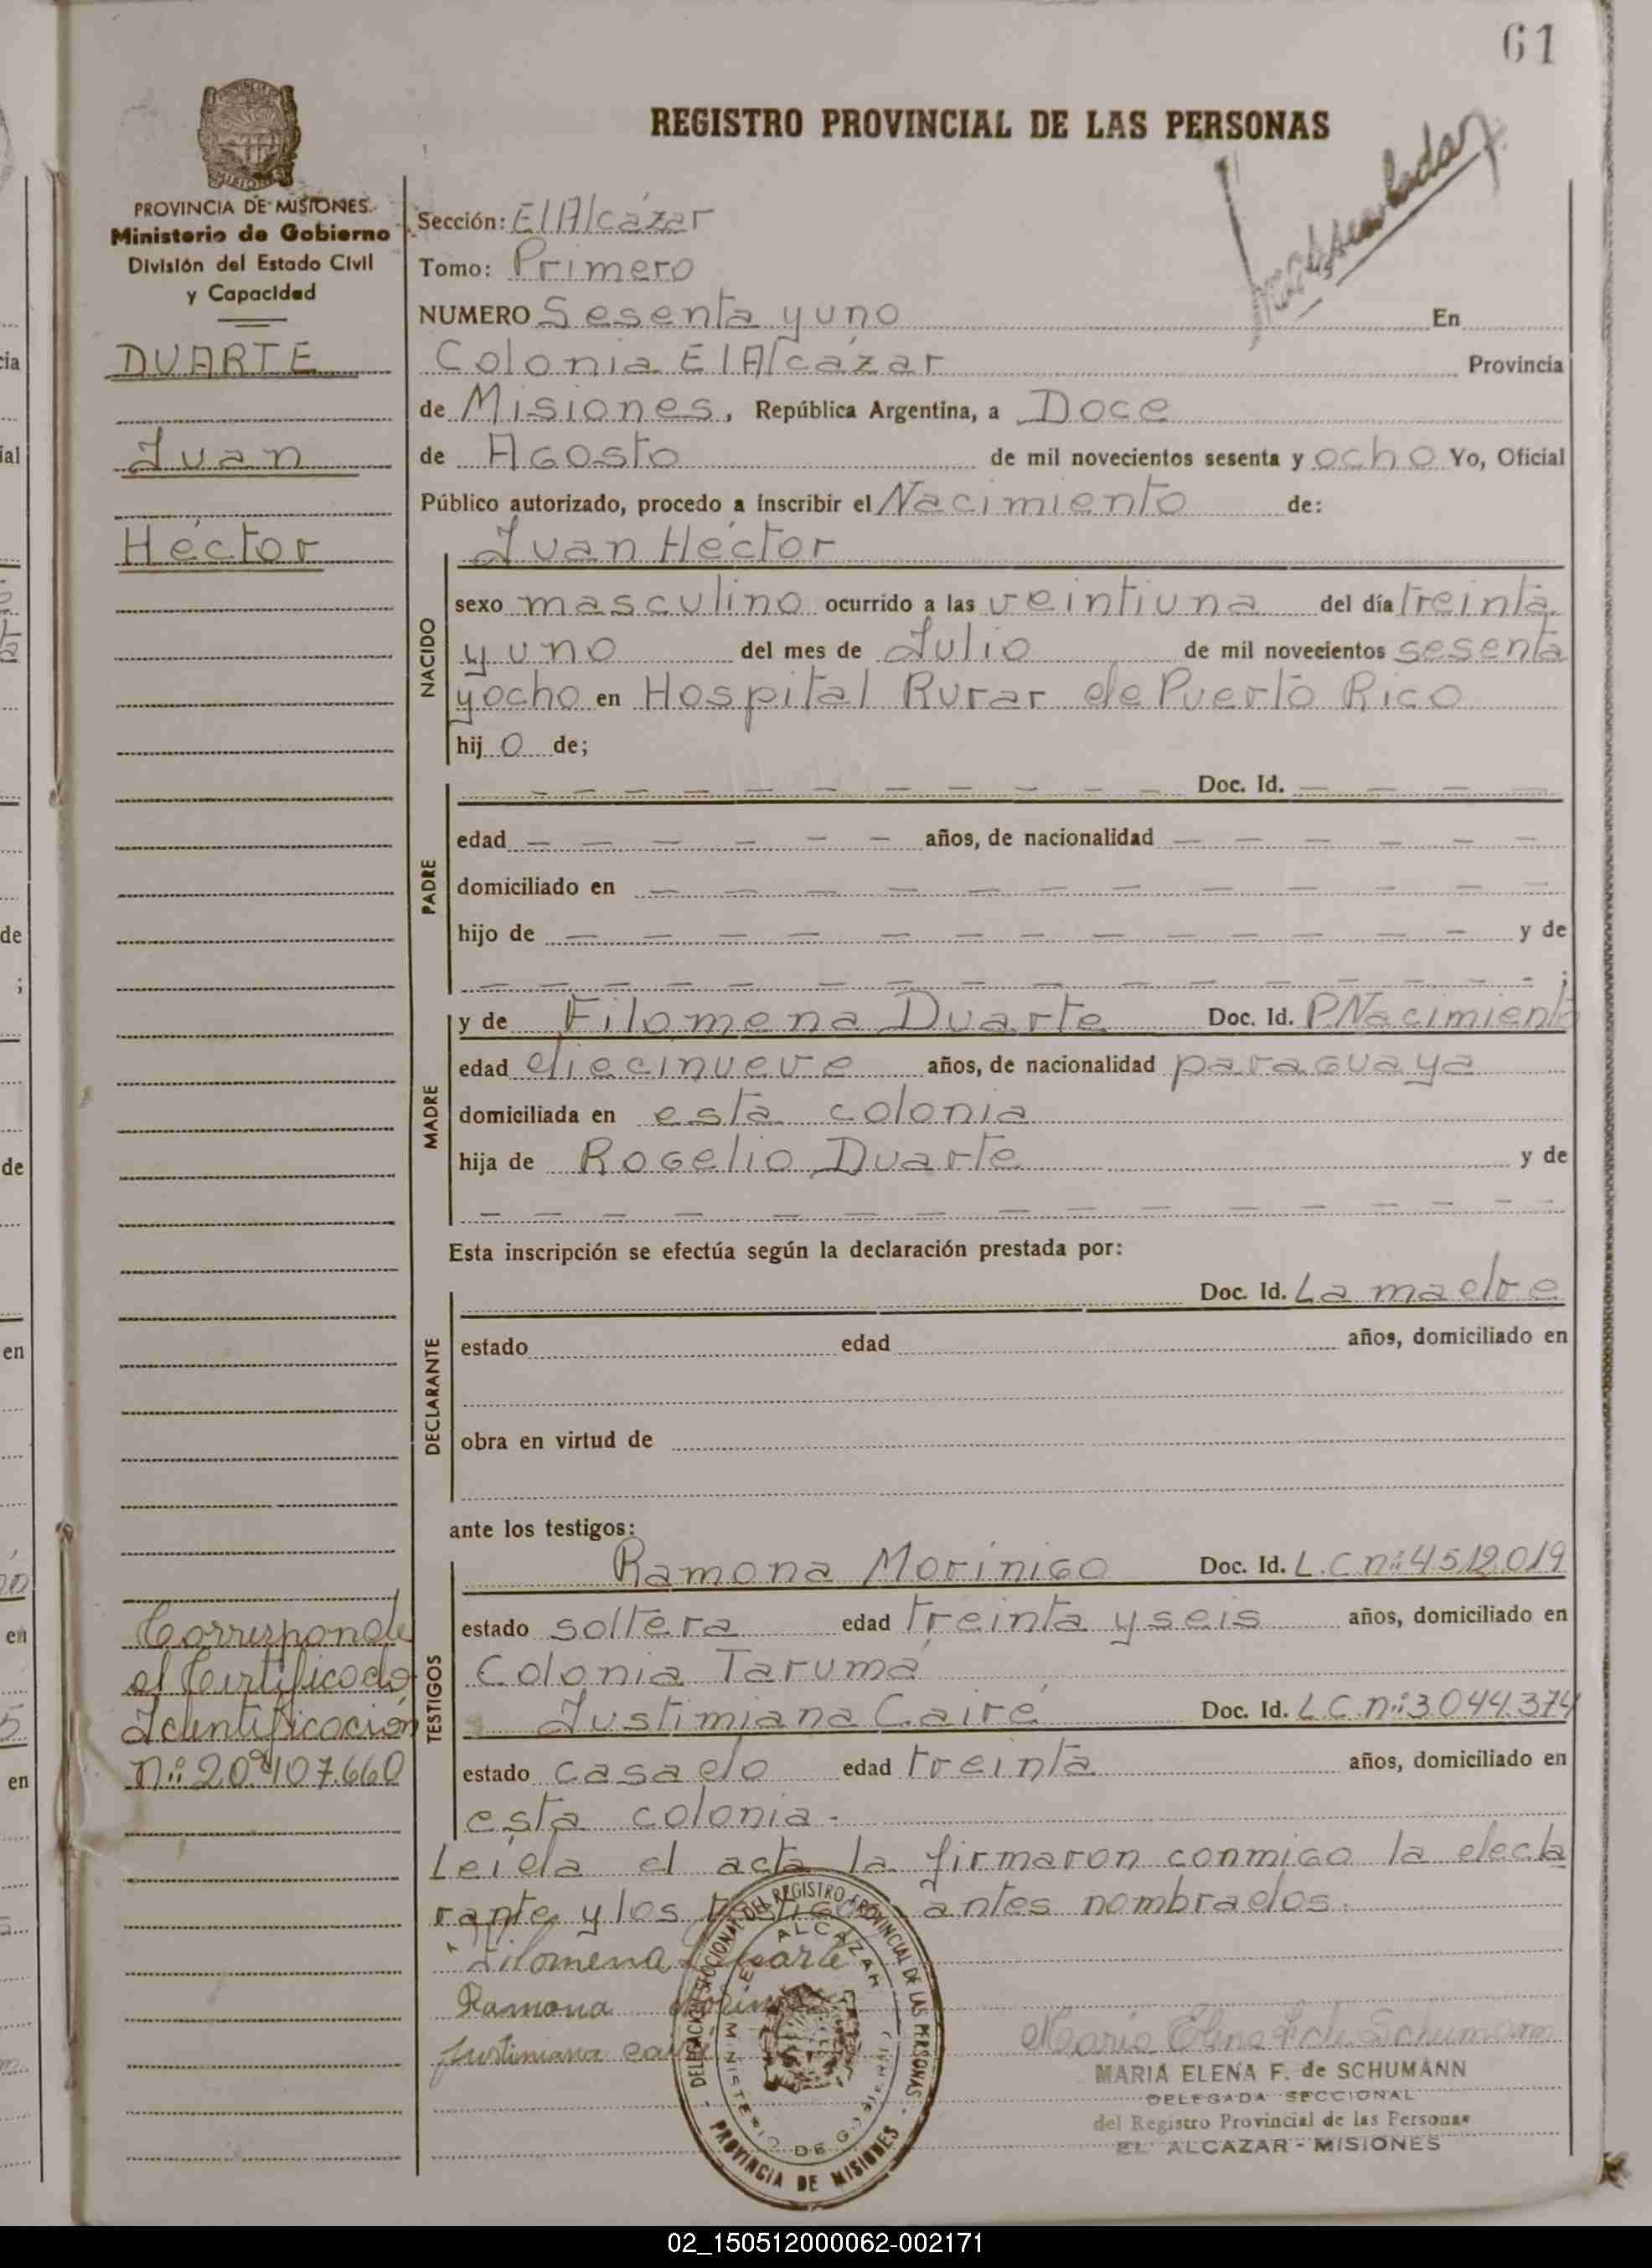 61
REGISTRO PROVINCIAL DE LAS PERSONAS
PROVINCIA DE MISIONES
Ministerio de Gobierno
División del Estado Civil
y Capacidad
DUARTE
Juan
Héctor
Corresponde
al Certificado
Identificación
n:º 20.107.660
Sección: El Alcázar
Tomo: Primero
NUMERO Sesenta y uno En
Colonia El Alcázar Provincia
de Misiones, República Argentina, a Doce
de Agosto de mil novecientos sesenta y ocho Yo, Oficial
Público autorizado, procedo a inscribir el Nacimiento de:
NACIDO
Juan Héctor
sexo masculino ocurrido a las veintiuna del día treinta
y uno del mes de Julio de mil novecientos sesenta
y ocho en Hospital Rurar de Puerto Rico
hij o de;
PADRE
— — — — — — — — — — Doc. Id. — — — —
edad — — — — — — años, de nacionalidad — — — — — —
domiciliado en — — — — — — — — — — — —
hijo de — — — — — — — — — — — — y de
— — — — — — — — — — — — — — — ;
MADRE
y de Filomena Duarte Doc. Id. P.Nacimiento
edad diecinueve años, de nacionalidad paraguaya
domiciliada en esta colonia
hija de Rogelio Duarte y de
— — — — — — — — — — — — — — —
Esta inscripción se efectúa según la declaración prestada por:
DECLARANTE
Doc. Id. La madre
estado edad años, domiciliado en
obra en virtud de
ante los testigos:
TESTIGOS
Ramona Morinigo Doc. Id. L.C.n:º 4.512.019
estado soltera edad treinta y seis años, domiciliado en
Colonia Tarumá
Justimiana Cairé Doc. Id. L.C.n:º 3.044.374
estado casado edad treinta años, domiciliado en
esta colonia.-
Leída el acta la firmaron conmigo la decla
rante y los testigos antes nombrados.
Filomena Duarte
Ramona Morinigo
Justiniana Cairé
DELEGACION SECCIONAL DEL REGISTRO PROVINCIAL DE LAS PERSONAS
EL ALCAZAR
MINISTERIO DE GOBIERNO
PROVINCIA DE MISIONES
Maria Elena F. de Schumann
MARIA ELENA F. de SCHUMANN
DELEGADA SECCIONAL
del Registro Provincial de las Personas
EL ALCAZAR - MISIONES
02_150512000062-002171